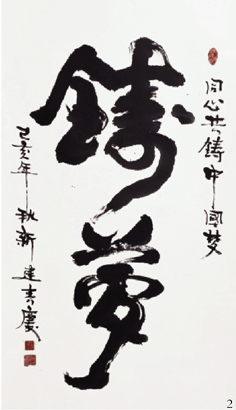 同心共鑄中國梦
鑄夢
己亥年秋新建慶
2